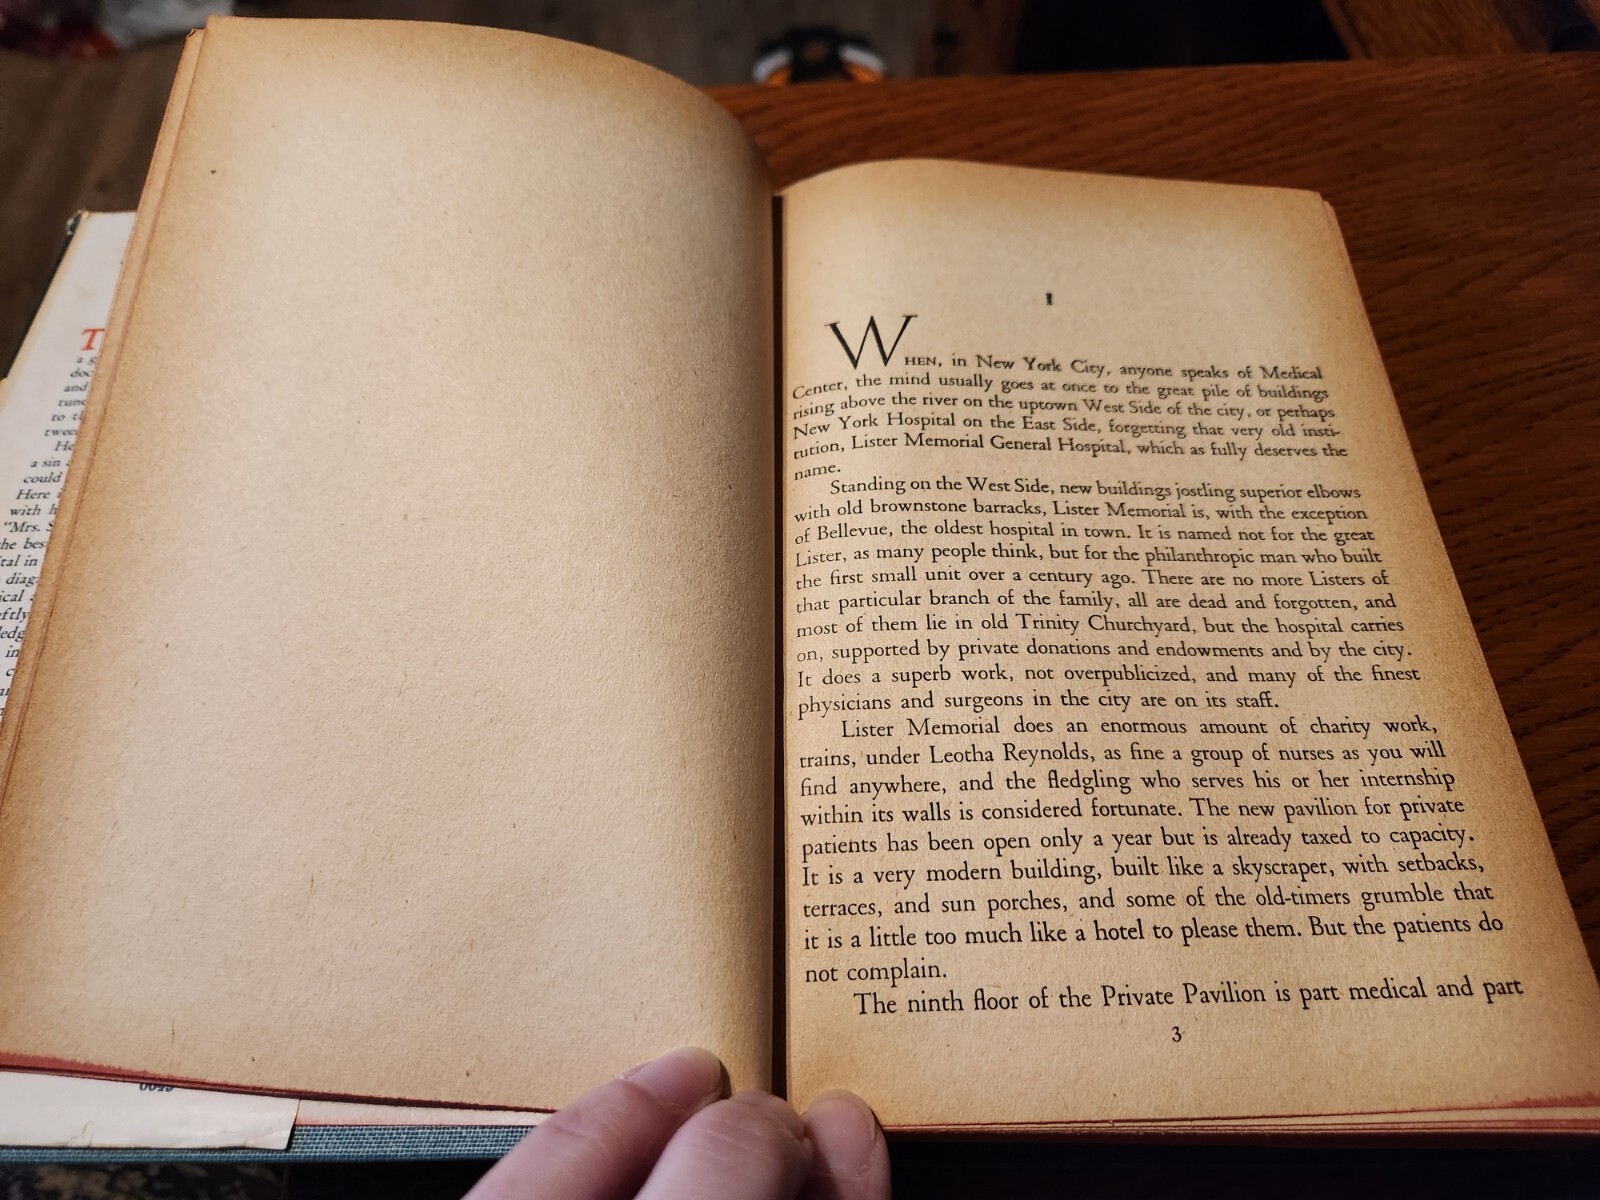 T
a
doc
and
tune
to t
twee
He
a sin
could
Here
with h
"Mrs. S
the bes
ital in
diag
ical
eftly
ledg
in
1
WHEN, in New York City, anyone speaks of Medical
Center, the mind usually goes at once to the great pile of buildings
rising above the river on the uptown West Side of the city, or perhaps
New York Hospital on the East Side, forgetting that very old insti-
tution, Lister Memorial General Hospital, which as fully deserves the
name.
Standing on the West Side, new buildings jostling superior elbows
with old brownstone barracks, Lister Memorial is, with the exception
of Bellevue, the oldest hospital in town. It is named not for the great
Lister, as many people think, but for the philanthropic man who built
the first small unit over a century ago. There are no more Listers of
that particular branch of the family, all are dead and forgotten, and
most of them lie in old Trinity Churchyard, but the hospital carries
on, supported by private donations and endowments and by the city.
It does a superb work, not overpublicized, and many of the finest
physicians and surgeons in the city are on its staff.
Lister Memorial does an enormous amount of charity work,
trains, under Leotha Reynolds, as fine a group of nurses as you will
find anywhere, and the fledgling who serves his or her internship
within its walls is considered fortunate. The new pavilion for private
patients has been open only a year but is already taxed to capacity.
It is a very modern building, built like a skyscraper, with setbacks,
terraces, and sun porches, and some of the old-timers grumble that
it is a little too much like a hotel to please them. But the patients do
not complain.
The ninth floor of the Private Pavilion is part medical and part
3